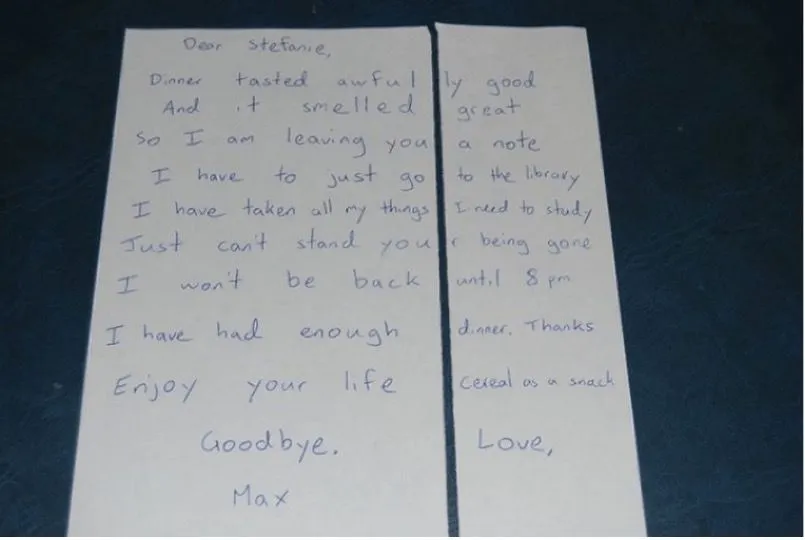 Dear Stefanie,
Dinner tasted awfully good
And it smelled great
So I am leaving you a note
I have to just go to the library
I have taken all my things I need to study
Just can't stand your being gone
I won't be back until 8 pm
I have had enough dinner. Thanks
Enjoy your life cereal as a snack
Goodbye. Love,
Max